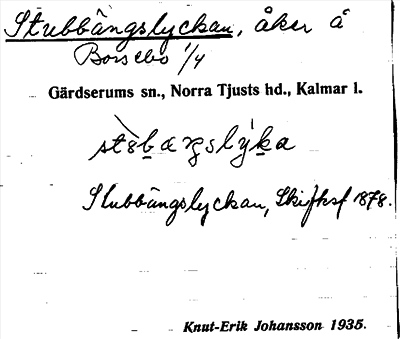 Stubbängslyckan, åker å
Borsebo 1/4
Gärdserums sn., Norra Tjusts hd., Kalmar l.
Stubbängslyckan, Skifksf 1878.
Knut-Erik Johansson 1935.